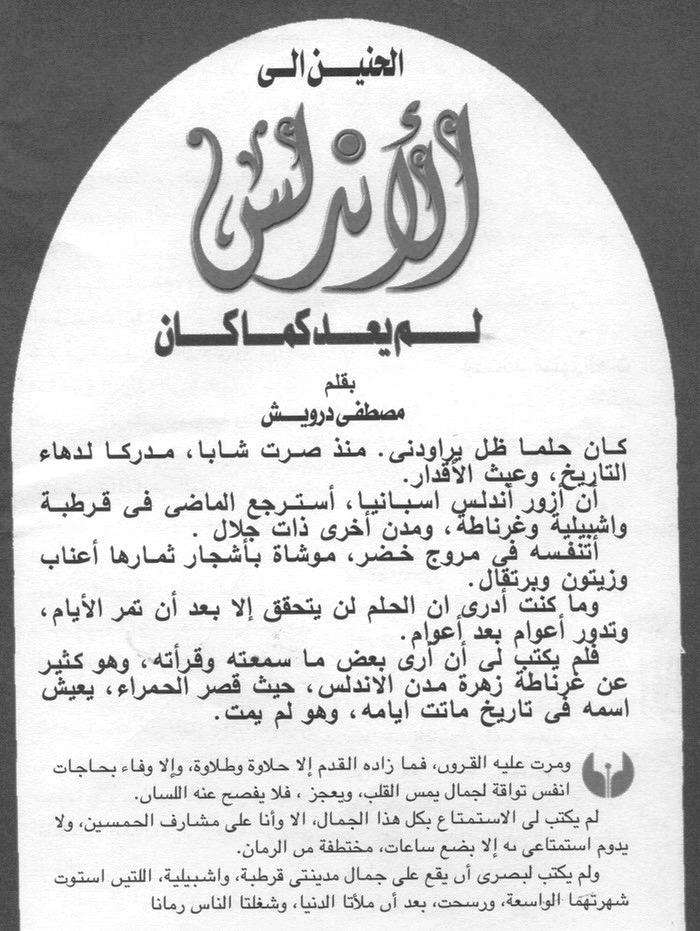 الحنين الى
الأندلس
لم يعد كما كان
بقلم
مصطفى درويش
كان حلما ظل يراودنى. منذ صرت شابا، مدركا لدهاء
التاريخ، وعبث الأقدار.
أن أزور أندلس اسبانيا، أسترجع الماضى فى قرطبة
واشبيلية وغرناطة، ومدن أخرى ذات جلال .
أتنفسه فى مروج خضر، موشاة بأشجار ثمارها أعناب
وزيتون وبرتقال.
وما كنت أدرى ان الحلم لن يتحقق إلا بعد أن تمر الأيام،
وتدور أعوام بعد أعوام.
فلم يكتب لى أن أرى بعض ما سمعته وقرأته، وهو كثير
عن غرناطة زهرة مدن الاندلس، حيث قصر الحمراء، يعيش
اسمه فى تاريخ ماتت ايامه، وهو لم يمت.
ومرت عليه القرون، فما زاده القدم إلا حلاوة وطلاوة، وإلا وفاء بحاجات
انفس تواقة لجمال يمس القلب، ويعجز ، فلا يفصح عنه اللسان.
لم يكتب لى الاستمتاع بكل هذا الجمال، الا وأنا على مشارف الخمسين، ولا
يدوم استمتاعى به إلا بضع ساعات، مختطفة من الزمان.
ولم يكتب لبصرى أن يقع على جمال مدينتى قرطبة، واشبيلية، اللتين استوت
شهرتهما الواسعة، ورسخت، بعد أن ملأتا الدنيا، وشغلتا الناس زمانا